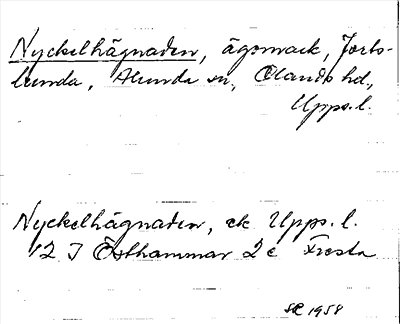 Nyckelhägnaden, ägomark, Jorts-
lunda, Alunda sn, Olands hd,
Upps. l.
Nyckelhägnaden, ek Upps. l.
12 I Östhammar 2 c Fresta
1958